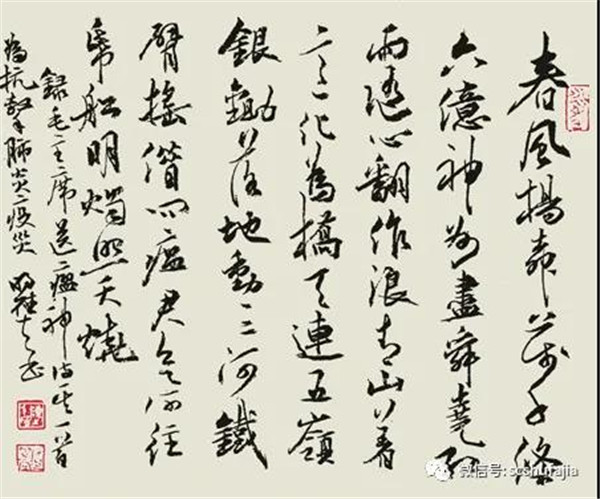 春風楊柳萬千條
六億神州盡舜堯紅
雨随心翻作浪青山着
意化為橋天連五嶺
銀鋤落地動三河鐵
臂搖借問瘟君欲何往
帋船明燭照天燒
録毛主席送瘟神诗其一首
為抗擊肺炎疫災
微信号: scshufajia